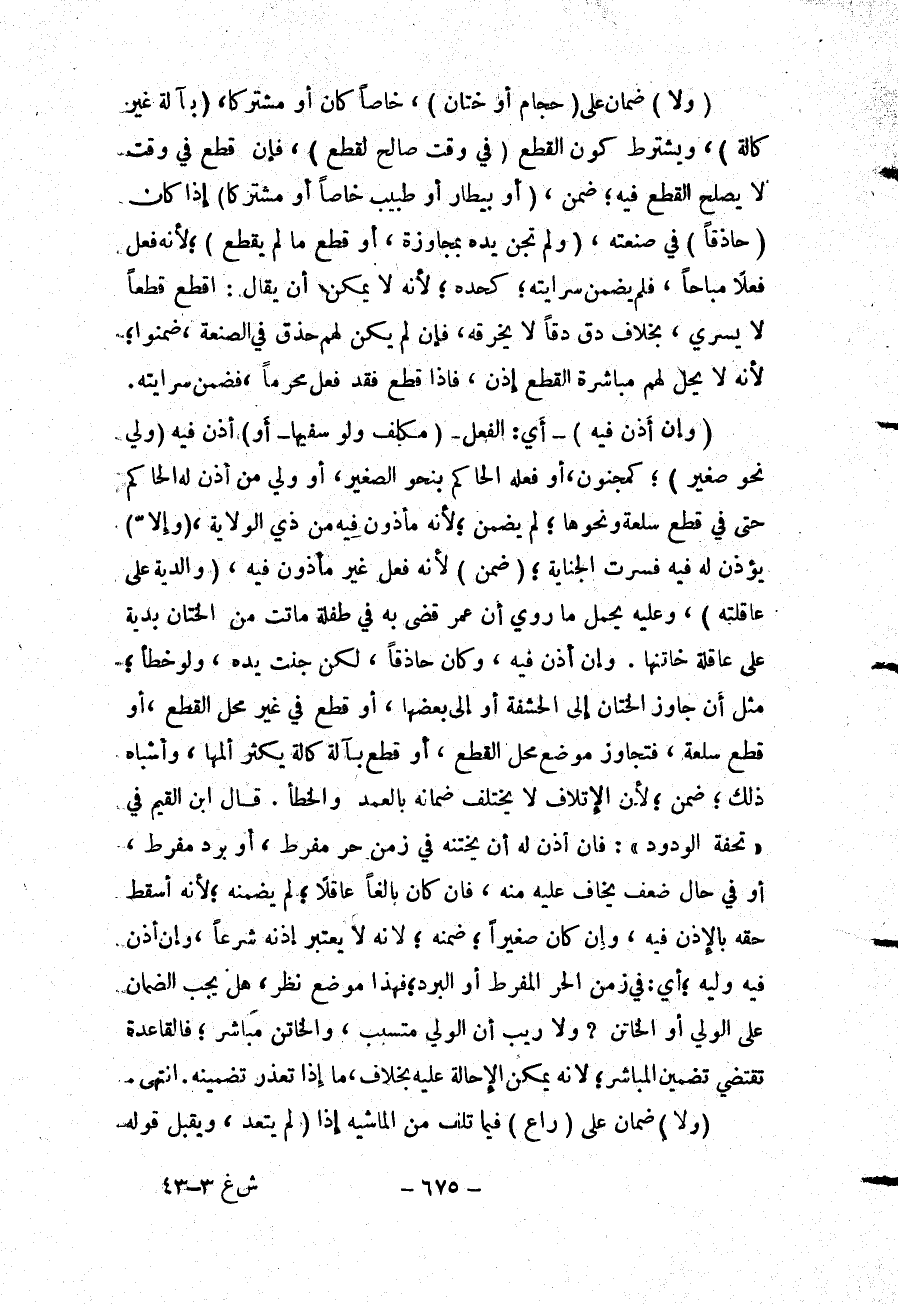 ( ولا ) ضمان على ( حجام أو ختان ) ، خاصاً كان أو مشتركا، ( بآلة غير
كالة ) ، ويشترط كون القطع ( في وقت صالح لقطع ) ، فإن قطع في وقت
لا يصلح القطع فيه ؛ ضمن ، ( أو بيطار أو طبيب خاصاً أو مشتركا ) إذا كان
( حاذقاً ) في صنعته ، ( ولم تجن يده بمجاوزة ، أو قطع ما لم يقطع ) ؛ لأنه فعل
فعلًا مباحاً ، فلم يضمن سرايته ؛ كحده ؛ لأنه لا يمكن أن يقال : اقطع قطعاً
لا يسري ، بخلاف دق دقاً لا يخرقه ، فإن لم يكن لهم حذق في الصنعة ، ضمنوا ؛
لأنه لا يحل لهم مباشرة القطع إذن ، فاذا قطع فقد فعل محرماً ، فضمن سرايته .
( وإن أذن فيه ) – أي : الفعل – ( مكلف ولو سفيها – أو ) أذن فيه ( ولي
نحو صغير ) ؛ كمجنون ، أو فعله الحاكم بنحو الصغير ، أو ولي من أذن له الحاكم
حتى في قطع سلعة ونحوها ؛ لم يضمن ؛ لأنه مأذون فيه من ذي الولاية ، ( وإلا )
يؤذن له فيه فسرت الجناية ؛ ( ضمن ) لأنه فعل غير مأذون فيه ، ( والدية على
عاقلته ) ، وعليه يحمل ما روي أن عمر قضى به في طفلة ماتت من الختان بدية
على عاقلة خاتنها . وإن أذن فيه ، وكان حاذقاً ، لكن جنت يده ، ولو خطأ ؛
مثل أن جاوز الختان إلى الحشفة أو إلى بعضها ، أو قطع في غير محل القطع ، أو
قطع سلعة ، فتجاوز موضع محل القطع ، أو قطع بآلة كالة يكثر ألمها ، وأشباه
ذلك ؛ ضمن ؛ لأن الإتلاف لا يختلف ضمانه بالعمد والخطأ . قال ابن القيم في
« تحفة الودود » : فان أذن له أن يختنه في زمن حر مفرط ، أو برد مفرط ،
أو في حال ضعف يخاف عليه منه ، فان كان بالغاً عاقلًا ؛ لم يضمنه ؛ لأنه أسقط
حقه بالإذن فيه ، وإن كان صغيراً ؛ ضمنه ؛ لانه لا يعتبر إذنه شرعاً ، وإن أذن
فيه وليه ؛ أي : في زمن الحر المفرط أو البرد ؛ فهذا موضع نظر ، هل يجب الضمان
على الولي أو الخاتن ؟ ولا ريب أن الولي متسبب ، والخاتن مباشر ؛ فالقاعدة
تقتضي تضمين المباشر ؛ لانه يمكن الإحالة عليه بخلاف ، ما إذا تعذر تضمينه . انتهى .
( ولا ) ضمان على ( راع ) فيما تلف من الماشيه إذا ( لم يتعد ، ويقبل قوله
– ٦٧٥ – ش غ ٣–٤٣